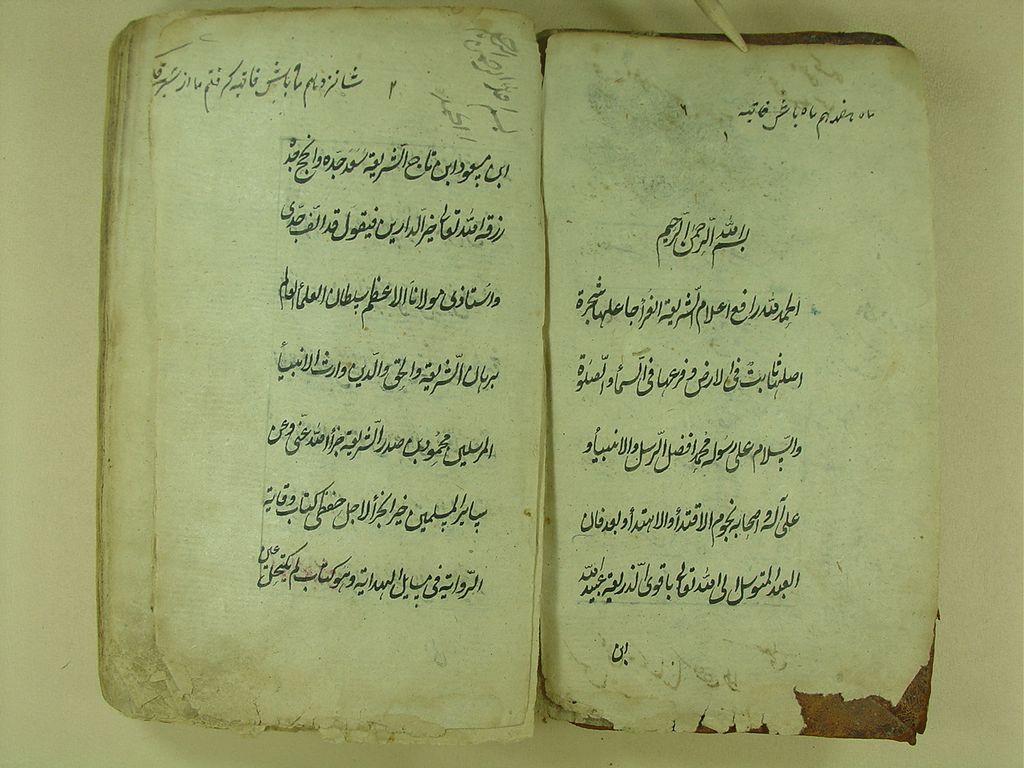 ماه هفدهم ماه باش
۱
بسم الله الرّحمن الرّحیم
الحمد لله رافع اعلام الشّریعة الغرأ جاعلها شجرة
اصلها ثابت فی الارض و فرعها فی السمأ والصّلوٰة
والسلام علی رسوله محمد افضل الرسل والانبیأ و
علی آله و صحابه نجوم الاقتدأ والاهتدأ و بعد فان
العبد المتوسل الی الله تعالی باقوی الذریعة عبید الله
ابن
شانزدهم ماه باش
۲
ابن مسعود ابن تاج الشریعة سعد جده و انجح جده
رزقه الله تعالی خیر الدارین فیقول قد الف جدی
و استاذی مولانا الاعظم سلطان العلمأ العالم
برهان الشّریعة والحق والدّین وارث الانبیأ
المرسلین محمود بن صدر الشریعة جزأ الله عنّی و عن
سایر المسلمین خیر الجزأ لاجل حفظی کتاب وقایة
الرّوایة فی مسایل الهدایة و هو کتاب لم یکتحل عین